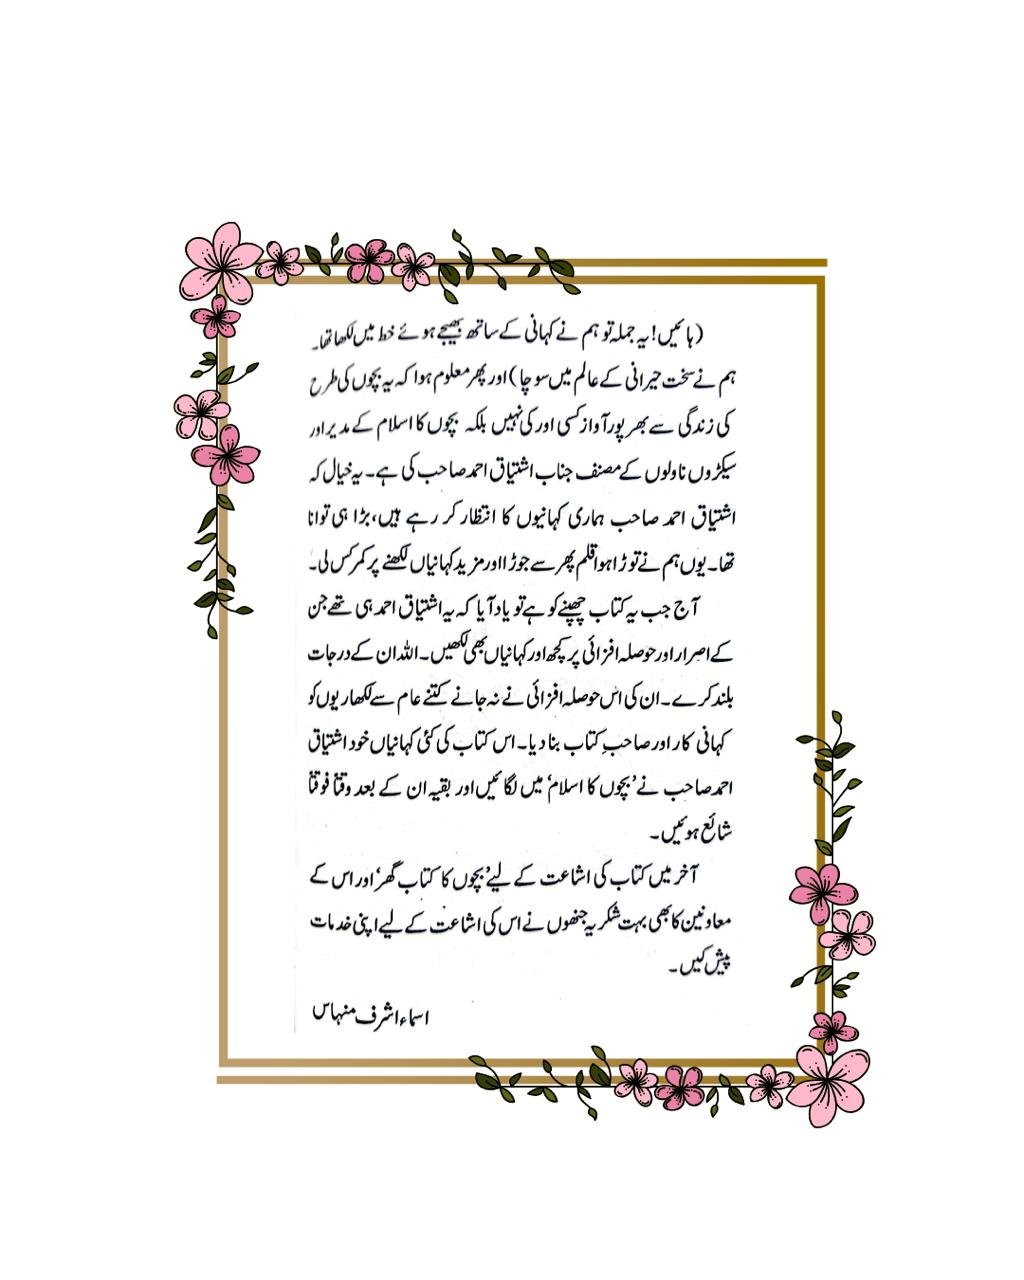 (ہائیں! یہ جملہ تو ہم نے کہانی کے ساتھ بھیجے ہوئے خط میں لکھا تھا۔
ہم نے سخت حیرانی کے عالم میں سوچا) اور پھر معلوم ہوا کہ یہ بچوں کی طرح
کی زندگی سے بھرپور آواز کسی اور کی نہیں بلکہ بچوں کا اسلام کے مدیر اور
سیکڑوں ناولوں کے مصنف جناب اشتیاق احمد صاحب کی ہے۔ یہ خیال کہ
اشتیاق احمد صاحب ہماری کہانیوں کا انتظار کر رہے ہیں، بڑا ہی توانا
تھا۔ یوں ہم نے توڑا ہوا قلم پھر سے جوڑا اور مزید کہانیاں لکھنے پر کمر کس لی۔
آج جب یہ کتاب چھپنے کو ہے تو یاد آیا کہ یہ اشتیاق احمد ہی تھے جن
کے اصرار اور حوصلہ افزائی پر کچھ اور کہانیاں بھی لکھیں۔ اللہ ان کے درجات
بلند کرے۔ ان کی اس حوصلہ افزائی نے نہ جانے کتنے عام سے لکھاریوں کو
کہانی کار اور صاحبِ کتاب بنا دیا۔ اس کتاب کی کئی کہانیاں خود اشتیاق
احمد صاحب نے ’بچوں کا اسلام‘ میں لگائیں اور بقیہ ان کے بعد وقتاً فوقتاً
شائع ہوئیں۔
آخر میں کتاب کی اشاعت کے لیے ’بچوں کا کتاب گھر‘ اور اس کے
معاونین کا بھی بہت شکریہ جنھوں نے اس کی اشاعت کے لیے اپنی خدمات
پیش کیں۔
اسماء اشرف منہاس